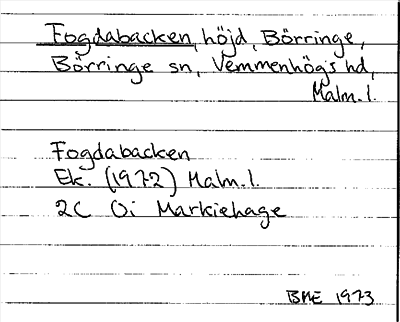 Fogdabacken, höjd, Börringe,
Börringe sn, Vemmenhögs hd,
Malm. l.
Fogdabacken
Ek. (1972) Malm. l.
2C 0i Markiehage
BME 1973